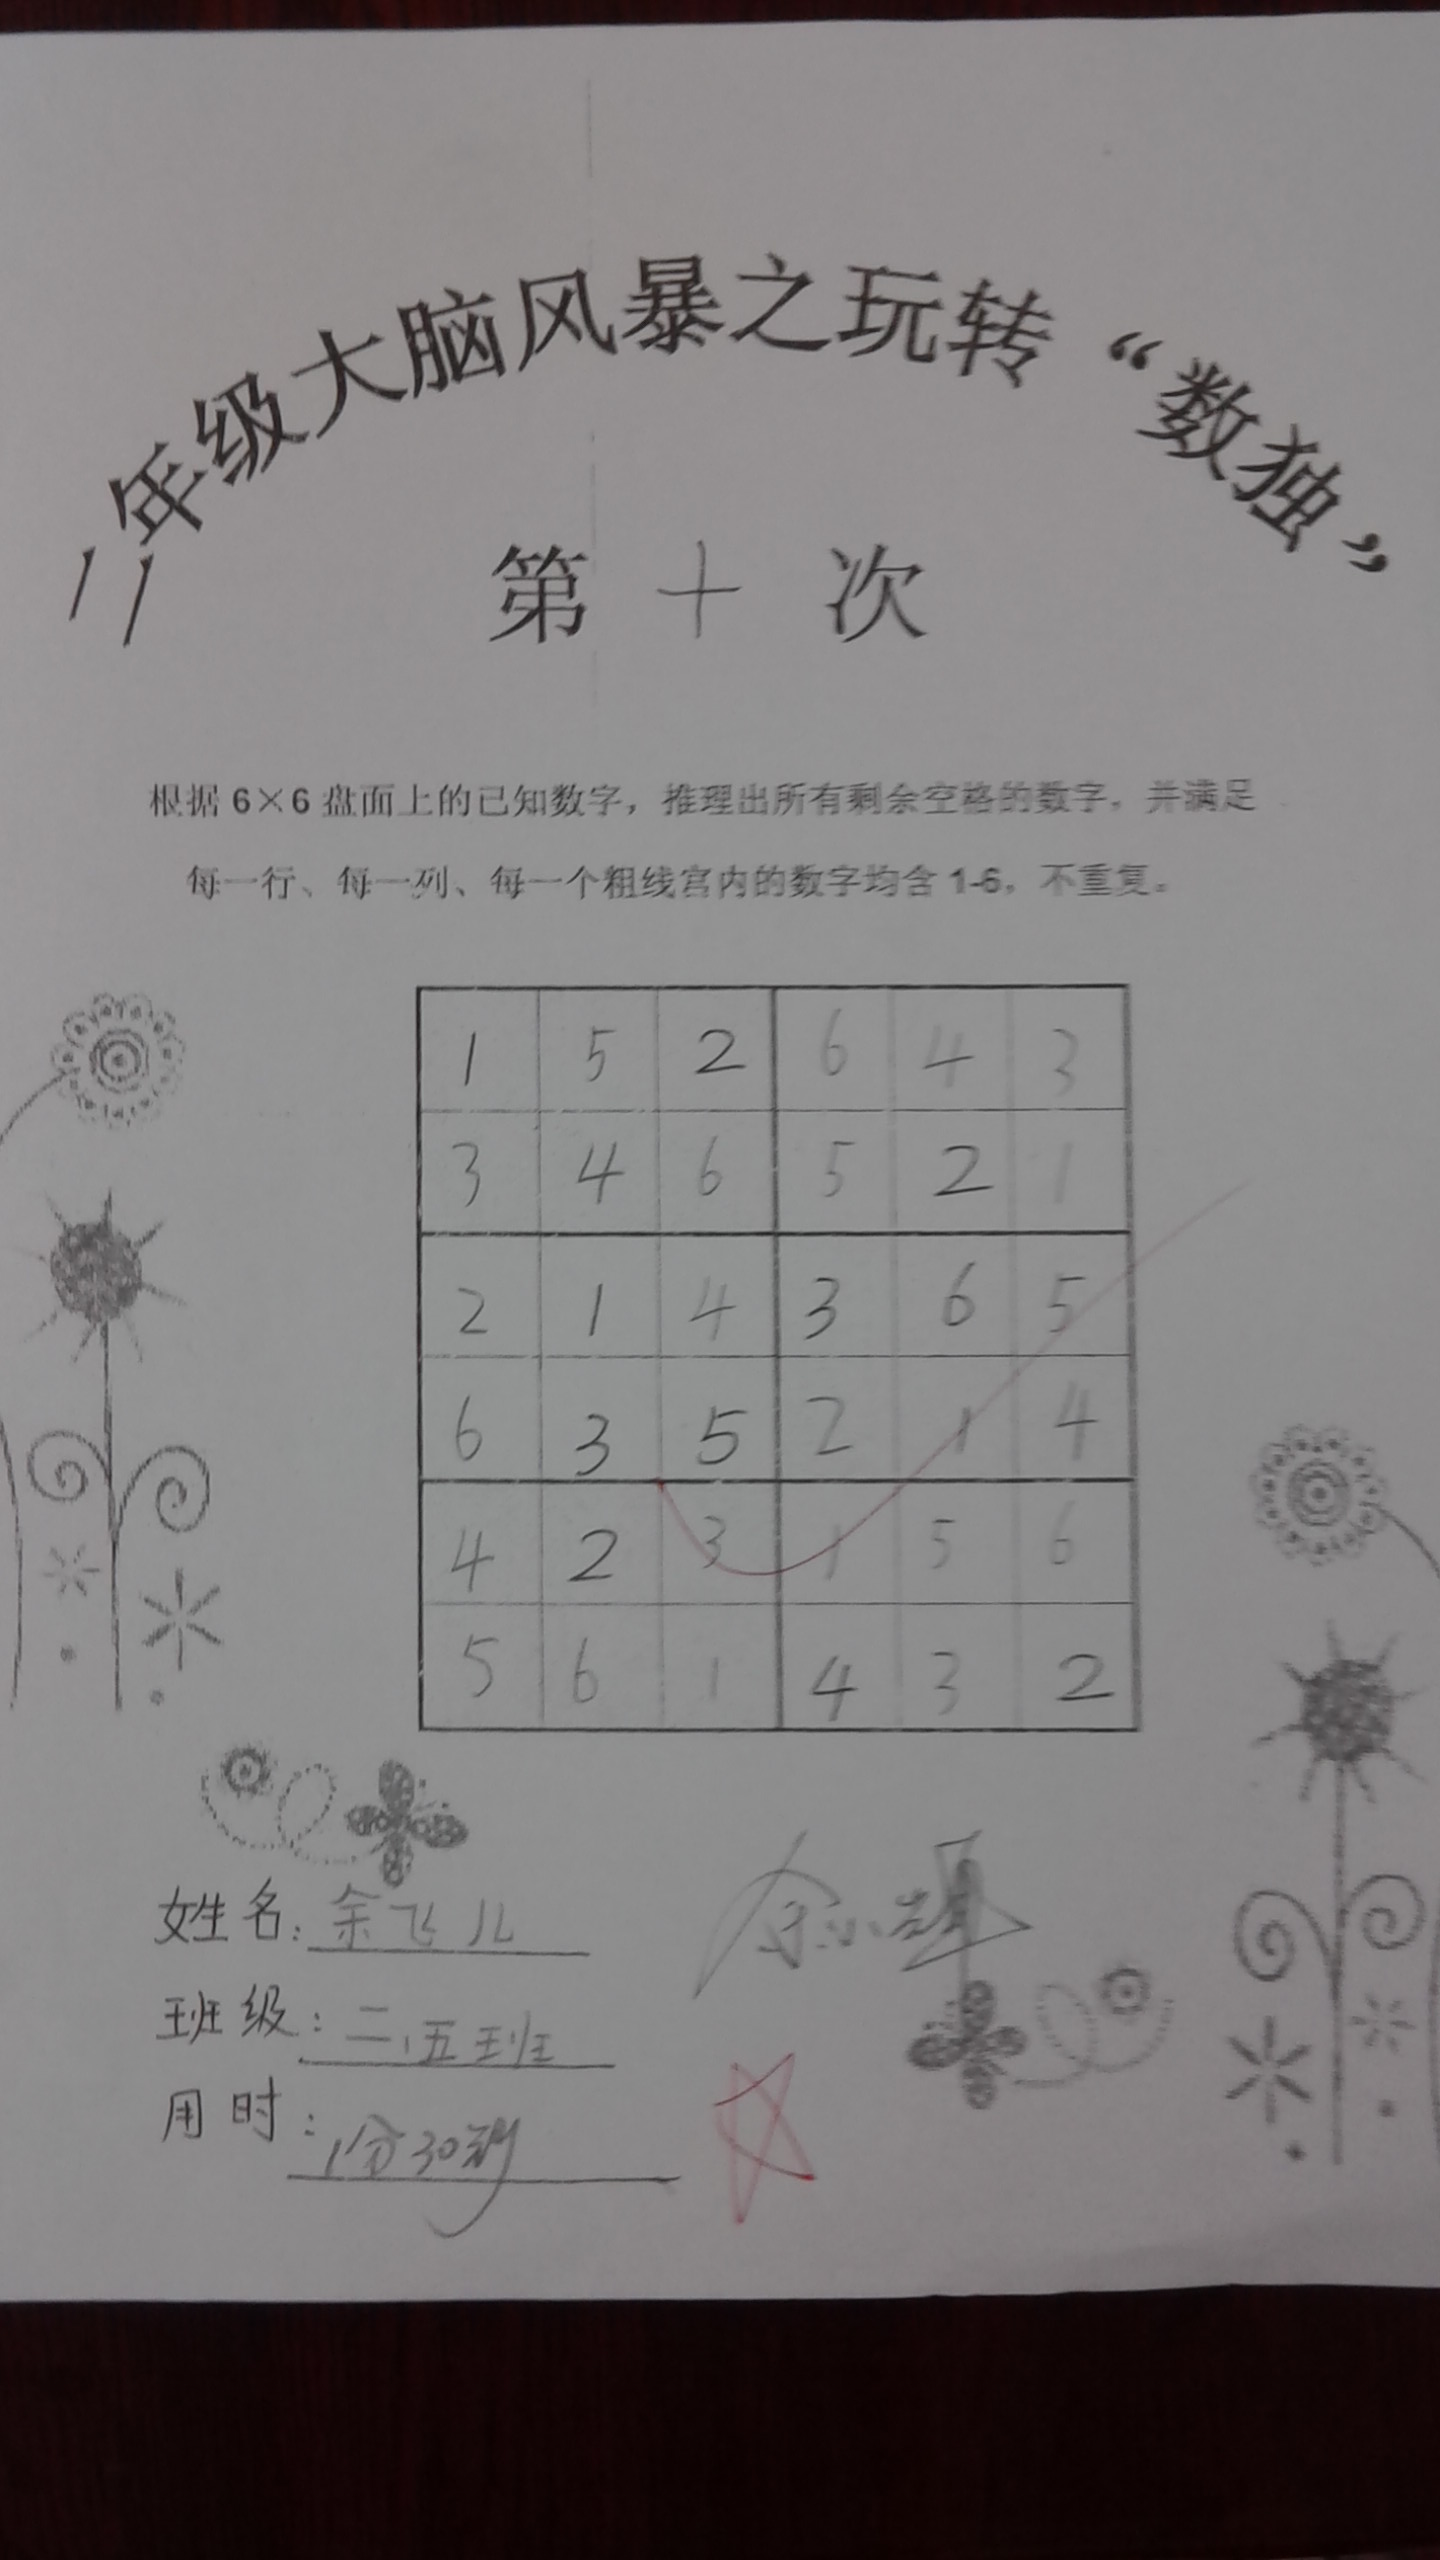 二年级大脑风暴之玩转“数独”
第 十 次
根据 6×6 盘面上的已知数字，推理出所有剩余空格的数字，并满足
每一行、每一列、每一个粗线宫内的数字均含 1-6，不重复。
1 5 2 6 4 3
3 4 6 5 2 1
2 1 4 3 6 5
6 3 5 2 1 4
4 2 3 1 5 6
5 6 1 4 3 2
姓名：余飞儿
班级：二、五班
用时：1分30秒